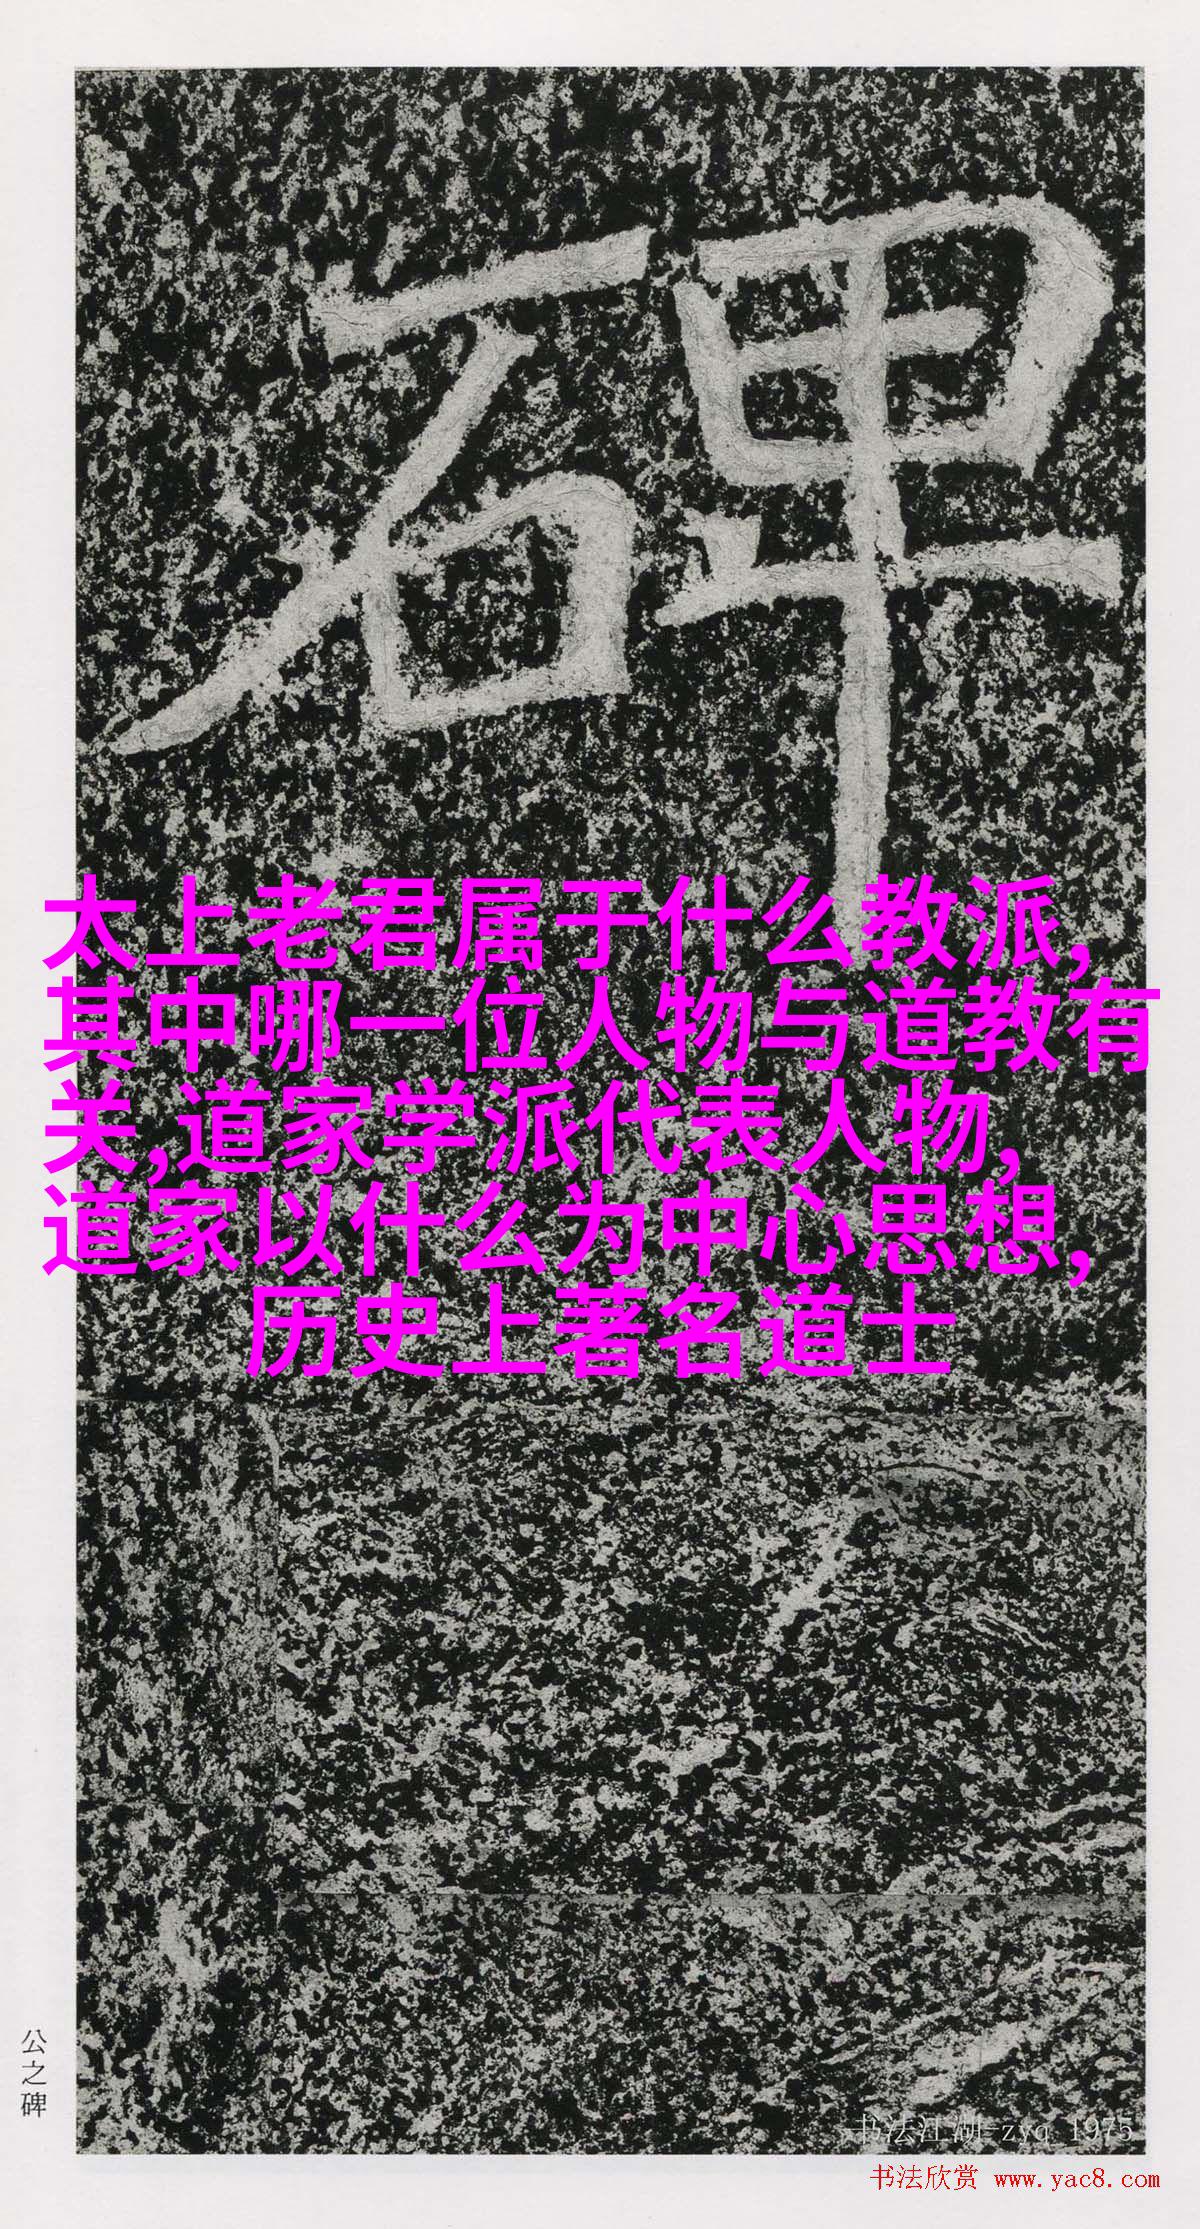 碑
太上老君属于什么教派,
其中哪一位人物与道教有
关,道家学派代表人物,
道家以什么为中心思想,
历史上著名道士
公之碑
书法江湖-zyq_1975
书法欣赏 www.yac8.com